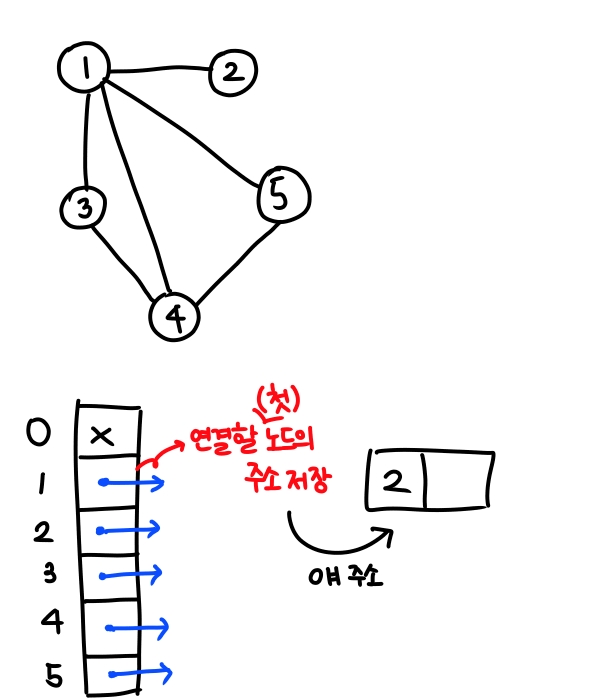 1
2
3
5
4
0 X
1
2
3
4
5
(첫)
연결할 노드의
주소 저장
2
얘 주소